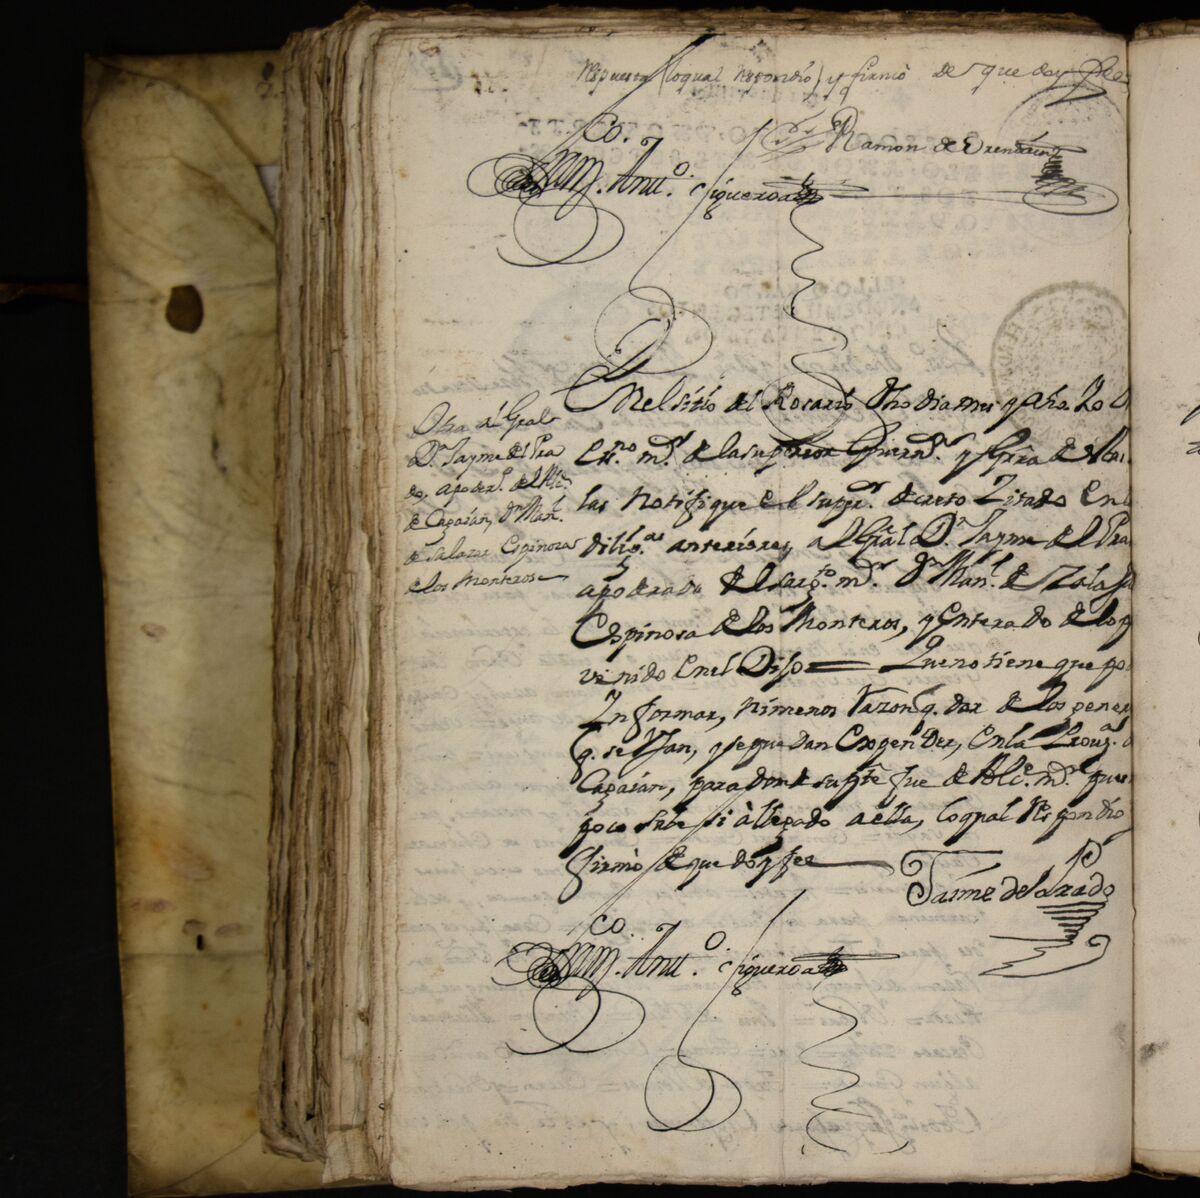 respuesta (loqual respondió) y firmó de que doy fee
Ramon de Orendain
Franco. Anto. Figueroa
Otra al Gral
Dn. Jayme del Pra
do, apoder. del Alc.
de Capaian, Dn Manl.
de Salazar Espinosa
de los Monteros
En el sitio del Rosario dho dia mes y año. Yo
Esno. mr. de la superior Governn. y Grra de
las notifique el supr. decreto Zitado en
dilixas anteriores, al Gral Dn Jayme del Pra
apoderado del sargto. mr. Dn Manl. de Zala
Espinosa de los Monteros, y enterado de lo p
venido en el Dijo = Que no tiene que po
Informar, ni menos razon q. dar de los
q. se usan, y se quedan en la Provz.
Capaian, para donde su pte fue de Alce. mr. pues
poco sabe si à llegado a ella, loqual respondio
firmó de que doy fee
Jaime del Prado
Franco. Anto. Figueroa